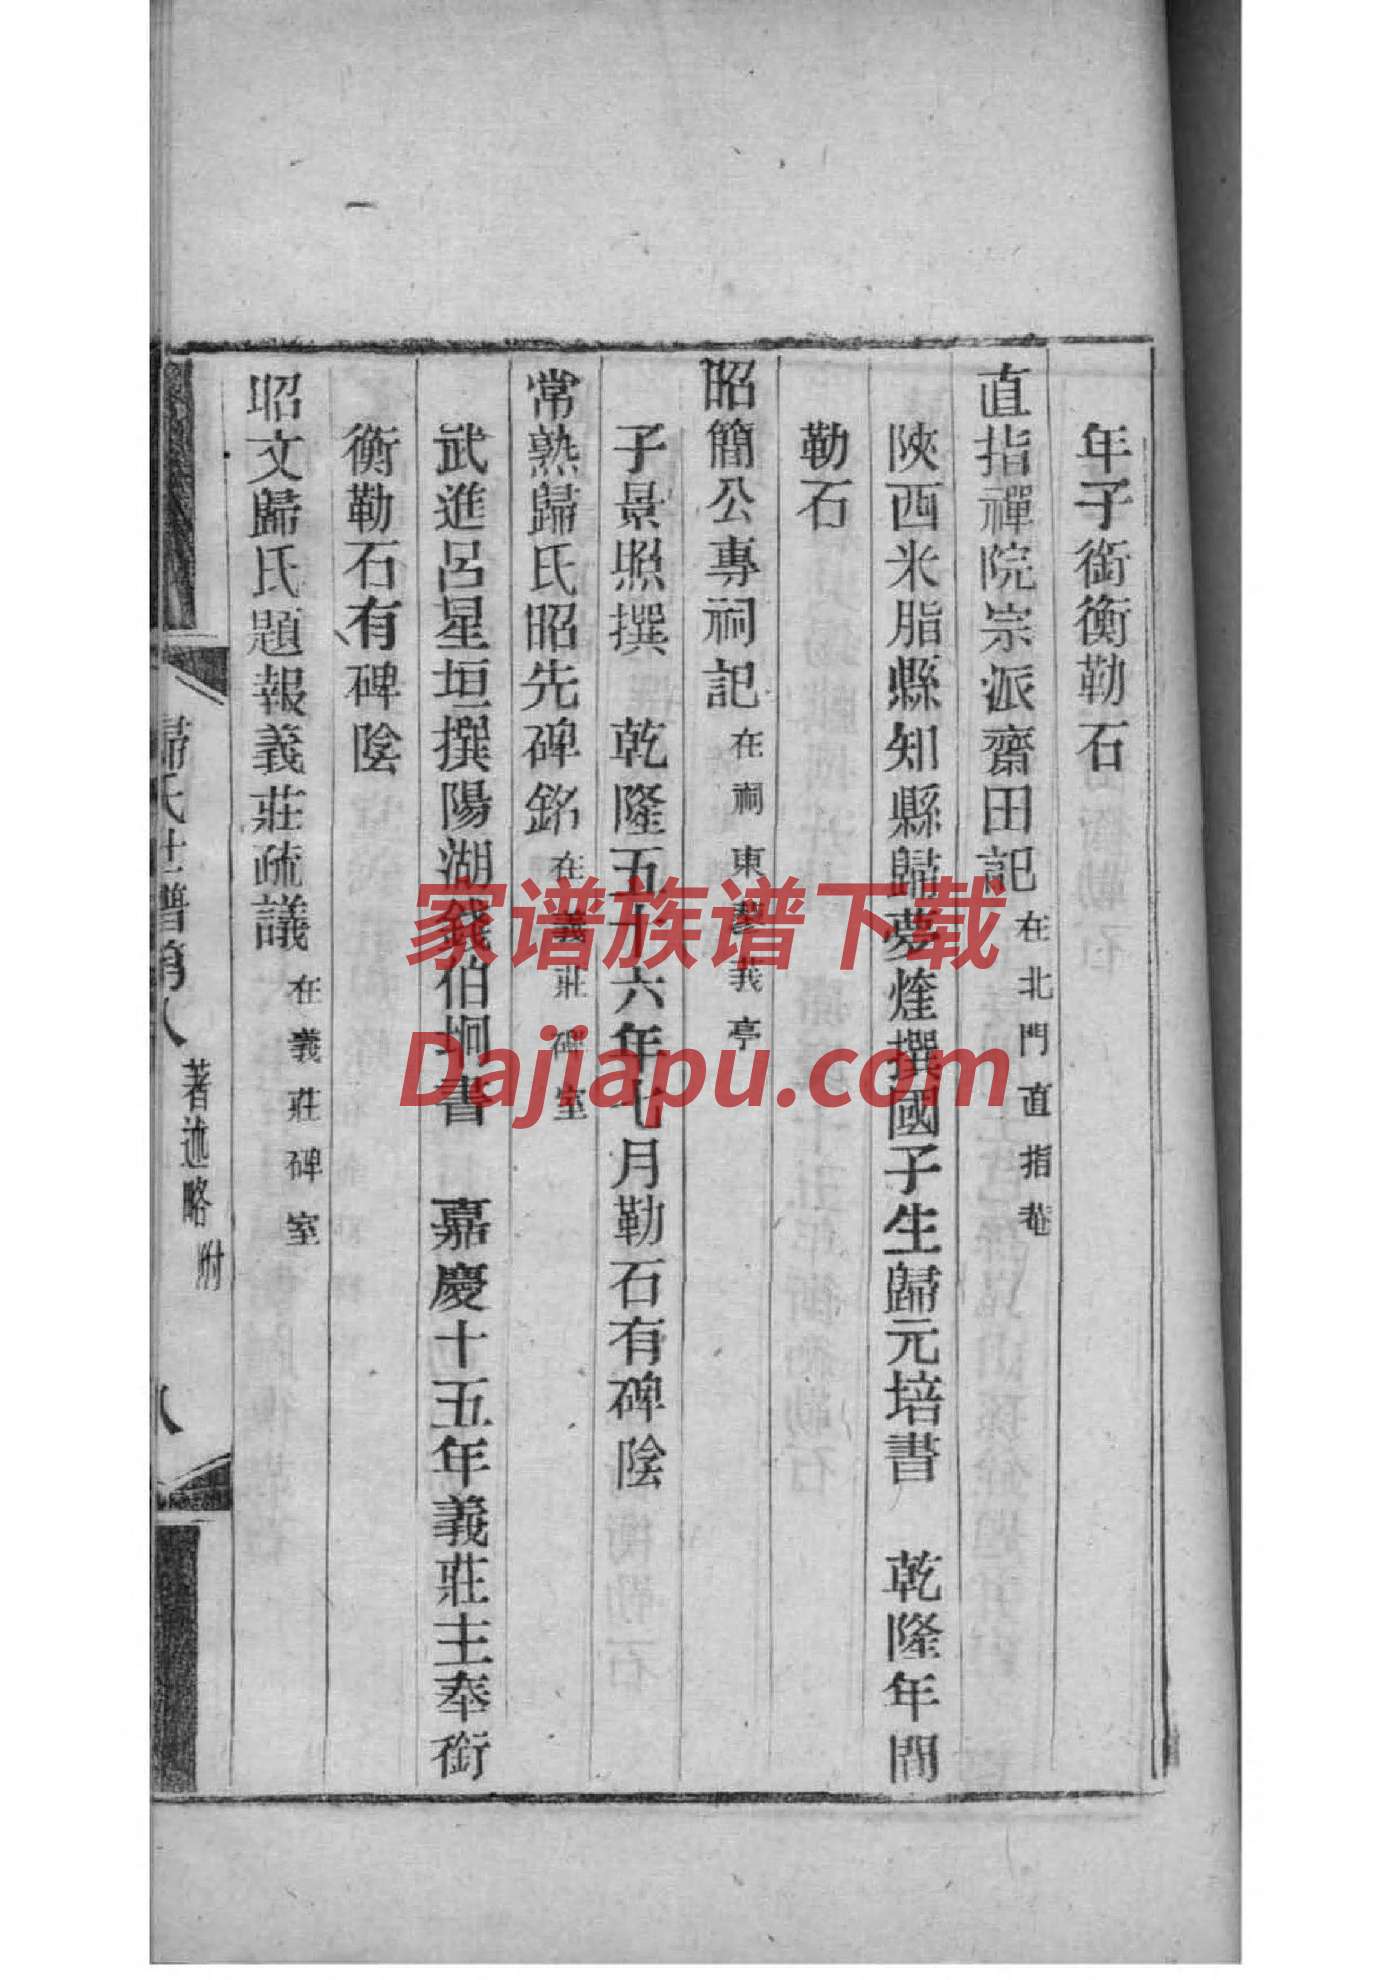 年子銜衡勒石
直指禪院宗派齋田記在北門直指菴
陝西米脂縣知縣歸夢煃撰國子生歸元培書　乾隆年間
勒石
昭簡公專祠記在祠東
子景照撰　乾隆五十六年七月勒石有碑陰
常熟歸氏昭先碑銘在義莊碑室
武進呂星垣撰陽湖錢伯坰書　嘉慶十五年義莊主奉銜
衡勒石有碑陰
昭文歸氏題報義莊疏議在義莊碑室
歸氏世譜
著述略附
八
家谱族谱下载
Dajiapu.com